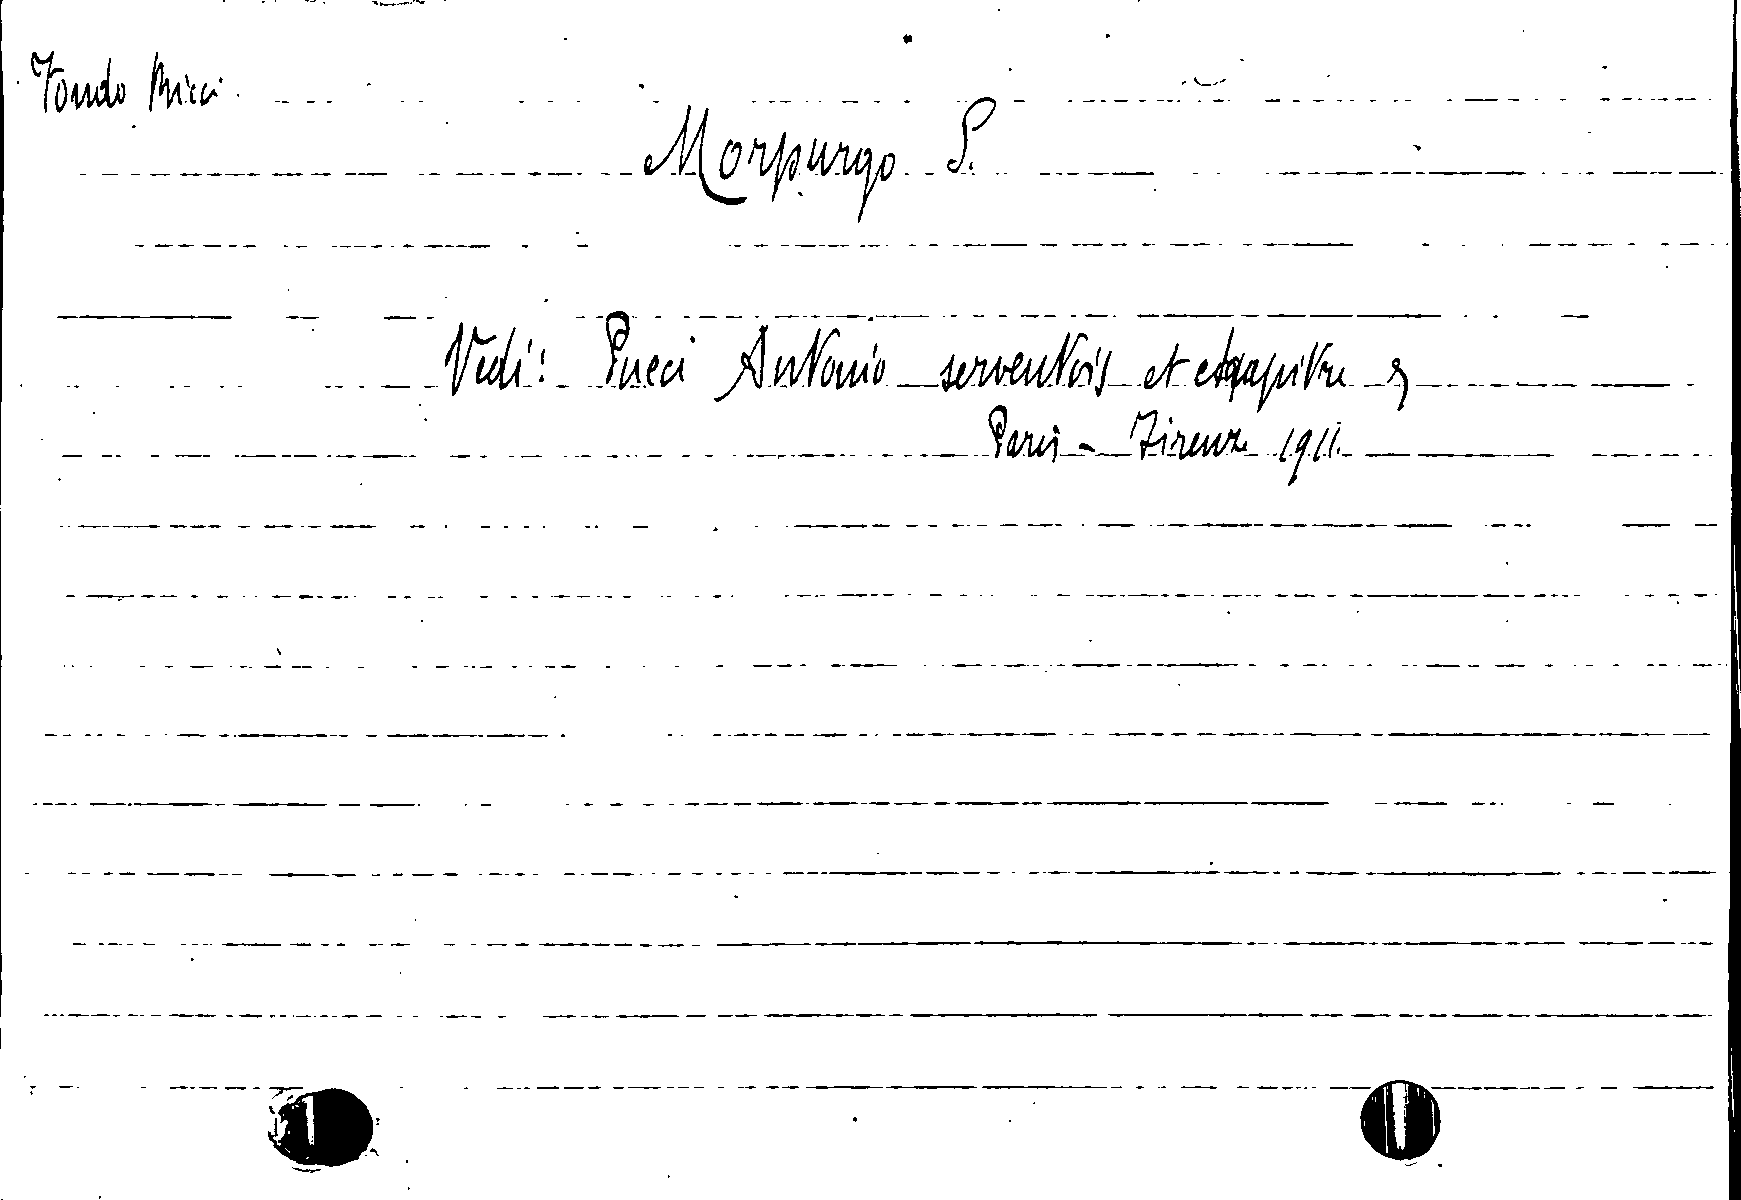 Fondo Ricci
Morpurgo S.
Vedi: Pucci Antonio serventois et chapitre
Paris - Firenze 1911.